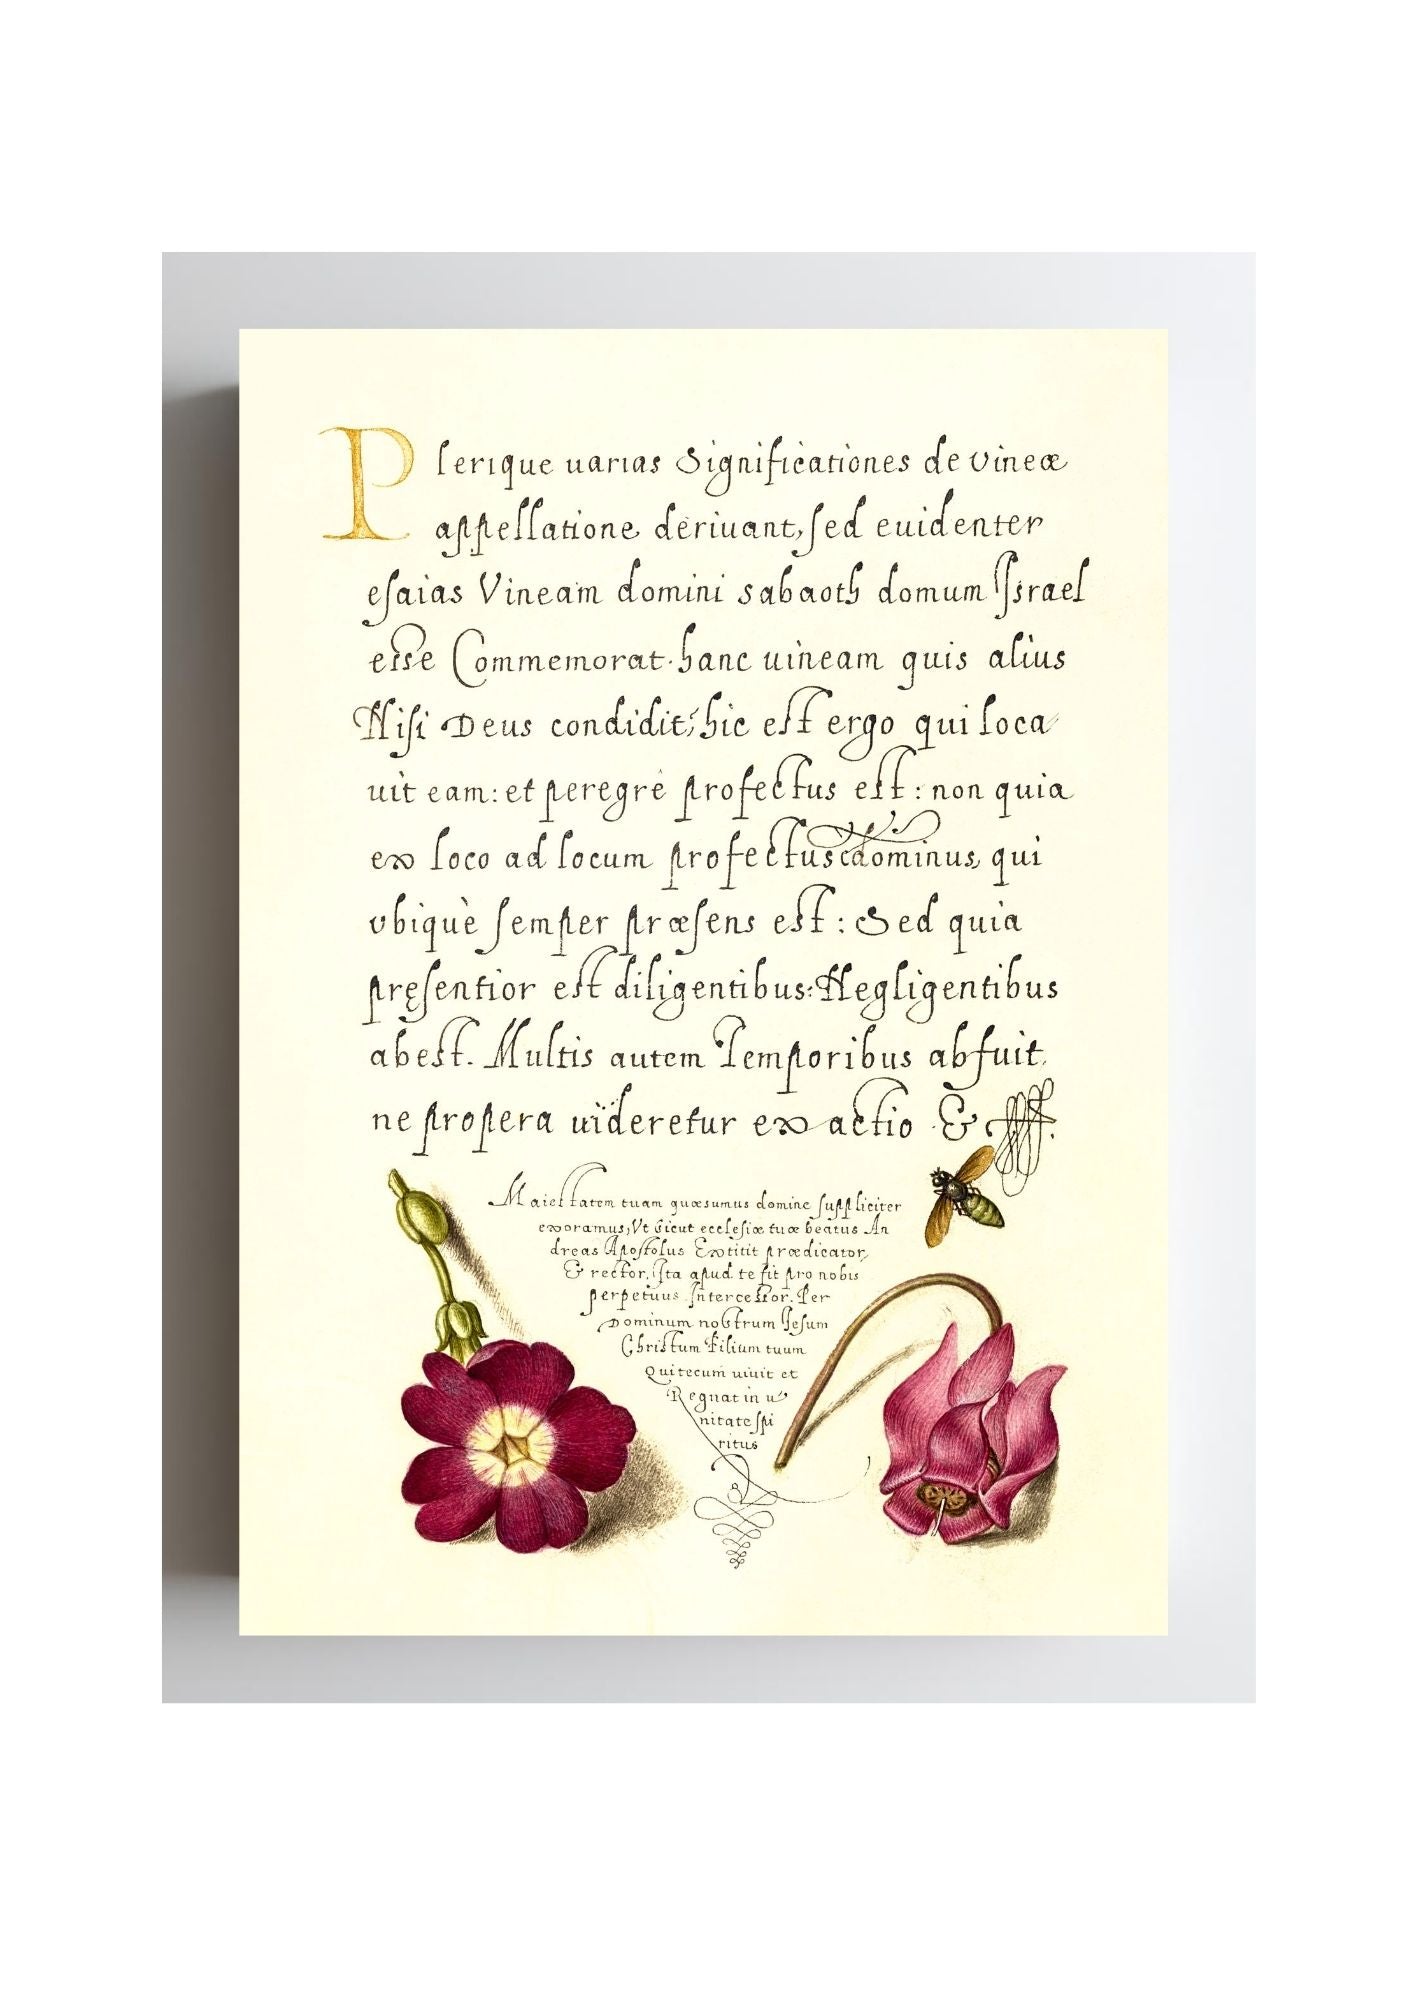 Plerique uarias Significationes de vineæ
appellatione deriuant, sed euidenter
esaias Vineam domini sabaoth domum Israel
esse Commemorat. hanc uineam quis alius
Nisi Deus condidit; hic est ergo qui loca
uit eam: et peregrè profectus est: non quia
ex loco ad locum profectus dominus, qui
vbiquè semper præsens est: Sed quia
pręsentior est diligentibus: Negligentibus
abest. Multis autem Temporibus abfuit,
ne propera uïderetur exactio &
Maiestatem tuam quæsumus domine suppliciter
exoramus, Vt sicut ecclesiæ tuæ beatus An
dreas Apostolus Extitit prædicator,
& rector, Ita apud te sit pro nobis
perpetuus Intercessor. Per
Dominum nostrum Iesum
Christum Filium tuum
Qui tecum uiuit et
Regnat in u
nitate spi
ritus